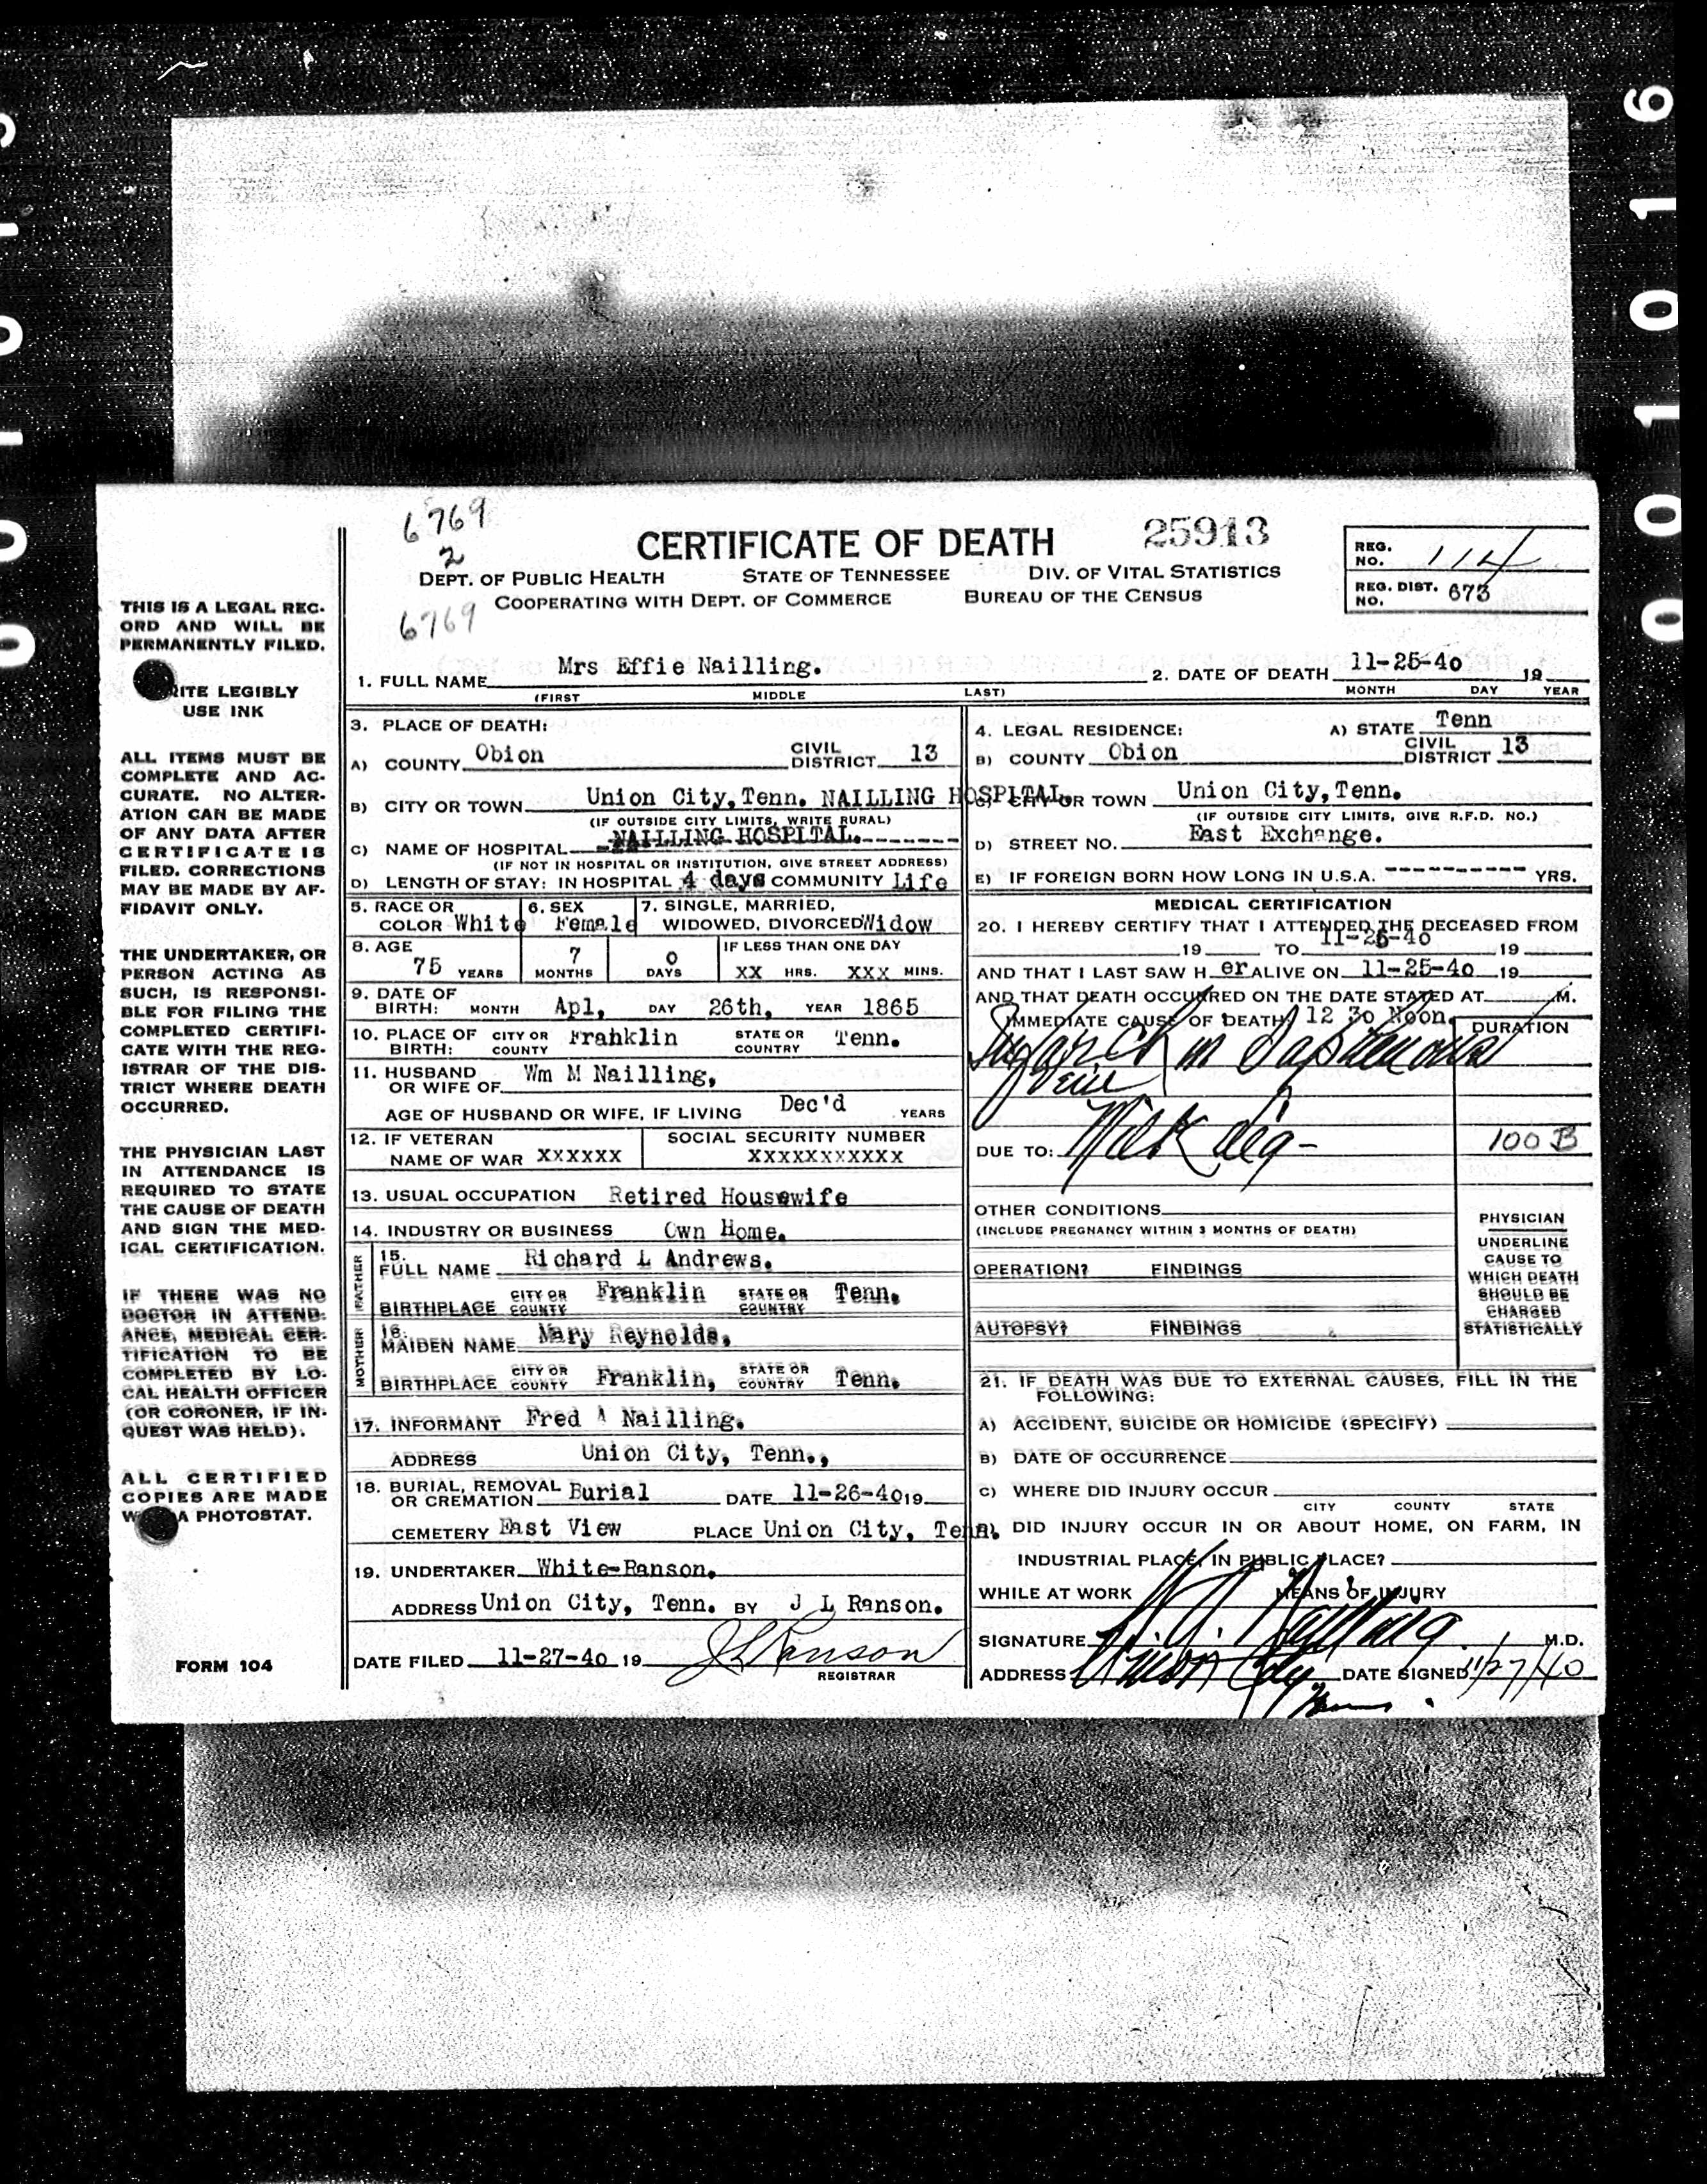 001016
6769
2
CERTIFICATE OF DEATH 25913
DEPT. OF PUBLIC HEALTH STATE OF TENNESSEE DIV. OF VITAL STATISTICS
COOPERATING WITH DEPT. OF COMMERCE BUREAU OF THE CENSUS
6769
REG. NO. 114
REG. DIST. NO. 673
THIS IS A LEGAL REC-
ORD AND WILL BE
PERMANENTLY FILED.
RITE LEGIBLY
USE INK
ALL ITEMS MUST BE
COMPLETE AND AC-
CURATE. NO ALTER-
ATION CAN BE MADE
OF ANY DATA AFTER
CERTIFICATE IS
FILED. CORRECTIONS
MAY BE MADE BY AF-
FIDAVIT ONLY.
THE UNDERTAKER, OR
PERSON ACTING AS
SUCH, IS RESPONSI-
BLE FOR FILING THE
COMPLETED CERTIFI-
CATE WITH THE REG-
ISTRAR OF THE DIS-
TRICT WHERE DEATH
OCCURRED.
THE PHYSICIAN LAST
IN ATTENDANCE IS
REQUIRED TO STATE
THE CAUSE OF DEATH
AND SIGN THE MED-
ICAL CERTIFICATION.
IF THERE WAS NO
DOCTOR IN ATTEND-
ANCE, MEDICAL CER-
TIFICATION TO BE
COMPLETED BY LO-
CAL HEALTH OFFICER
(OR CORONER, IF IN-
QUEST WAS HELD).
ALL CERTIFIED
COPIES ARE MADE
W A PHOTOSTAT.
FORM 104
1. FULL NAME Mrs Effie Nailling. 2. DATE OF DEATH 11-25-40 19
(FIRST MIDDLE LAST) MONTH DAY YEAR
3. PLACE OF DEATH:
A) COUNTY Obion CIVIL DISTRICT 13
B) CITY OR TOWN Union City, Tenn. NAILLING HOSPITAL.
(IF OUTSIDE CITY LIMITS, WRITE RURAL)
C) NAME OF HOSPITAL NAILLING HOSPITAL.
(IF NOT IN HOSPITAL OR INSTITUTION, GIVE STREET ADDRESS)
D) LENGTH OF STAY: IN HOSPITAL 4 days COMMUNITY Life
4. LEGAL RESIDENCE: A) STATE Tenn
B) COUNTY Obion CIVIL DISTRICT 13
C) CITY OR TOWN Union City, Tenn.
(IF OUTSIDE CITY LIMITS, GIVE R.F.D. NO.)
D) STREET NO. East Exchange.
E) IF FOREIGN BORN HOW LONG IN U.S.A. ---------- YRS.
5. RACE OR COLOR White 6. SEX Female 7. SINGLE, MARRIED, WIDOWED, DIVORCED Widow
8. AGE 75 YEARS 7 MONTHS 0 DAYS IF LESS THAN ONE DAY XX HRS. XXX MINS.
9. DATE OF BIRTH: MONTH Apl, DAY 26th, YEAR 1865
10. PLACE OF BIRTH: CITY OR COUNTY Franklin STATE OR COUNTRY Tenn.
11. HUSBAND OR WIFE OF Wm M Nailling,
AGE OF HUSBAND OR WIFE, IF LIVING Dec'd YEARS
12. IF VETERAN NAME OF WAR XXXXXX SOCIAL SECURITY NUMBER XXXXXXXXXXX
13. USUAL OCCUPATION Retired Housewife
14. INDUSTRY OR BUSINESS Own Home.
FATHER
15. FULL NAME Richard L Andrews.
BIRTHPLACE CITY OR COUNTY Franklin STATE OR COUNTRY Tenn.
MOTHER
16. MAIDEN NAME Mary Reynolds.
BIRTHPLACE CITY OR COUNTY Franklin, STATE OR COUNTRY Tenn.
17. INFORMANT Fred A Nailling.
ADDRESS Union City, Tenn.,
18. BURIAL, REMOVAL OR CREMATION Burial DATE 11-26-40 19
CEMETERY East View PLACE Union City, Tenn.
19. UNDERTAKER White-Ranson.
ADDRESS Union City, Tenn. BY J L Ranson.
DATE FILED 11-27-40 19 JL Ranson
REGISTRAR
MEDICAL CERTIFICATION
20. I HEREBY CERTIFY THAT I ATTENDED THE DECEASED FROM
19 TO 11-25-40 19
AND THAT I LAST SAW H er ALIVE ON 11-25-40 19
AND THAT DEATH OCCURRED ON THE DATE STATED AT M.
IMMEDIATE CAUSE OF DEATH 12 30 Noon. DURATION
in Saphenous
Vein
DUE TO: Milk leg- 100 B
OTHER CONDITIONS
(INCLUDE PREGNANCY WITHIN 3 MONTHS OF DEATH)
OPERATION? FINDINGS
AUTOPSY? FINDINGS
PHYSICIAN
UNDERLINE
CAUSE TO
WHICH DEATH
SHOULD BE
CHARGED
STATISTICALLY
21. IF DEATH WAS DUE TO EXTERNAL CAUSES, FILL IN THE
FOLLOWING:
A) ACCIDENT, SUICIDE OR HOMICIDE (SPECIFY)
B) DATE OF OCCURRENCE
C) WHERE DID INJURY OCCUR
CITY COUNTY STATE
D) DID INJURY OCCUR IN OR ABOUT HOME, ON FARM, IN
INDUSTRIAL PLACE, IN PUBLIC PLACE?
WHILE AT WORK MEANS OF INJURY
SIGNATURE Nailling M.D.
ADDRESS Union City DATE SIGNED 11/27/40
Tenn.